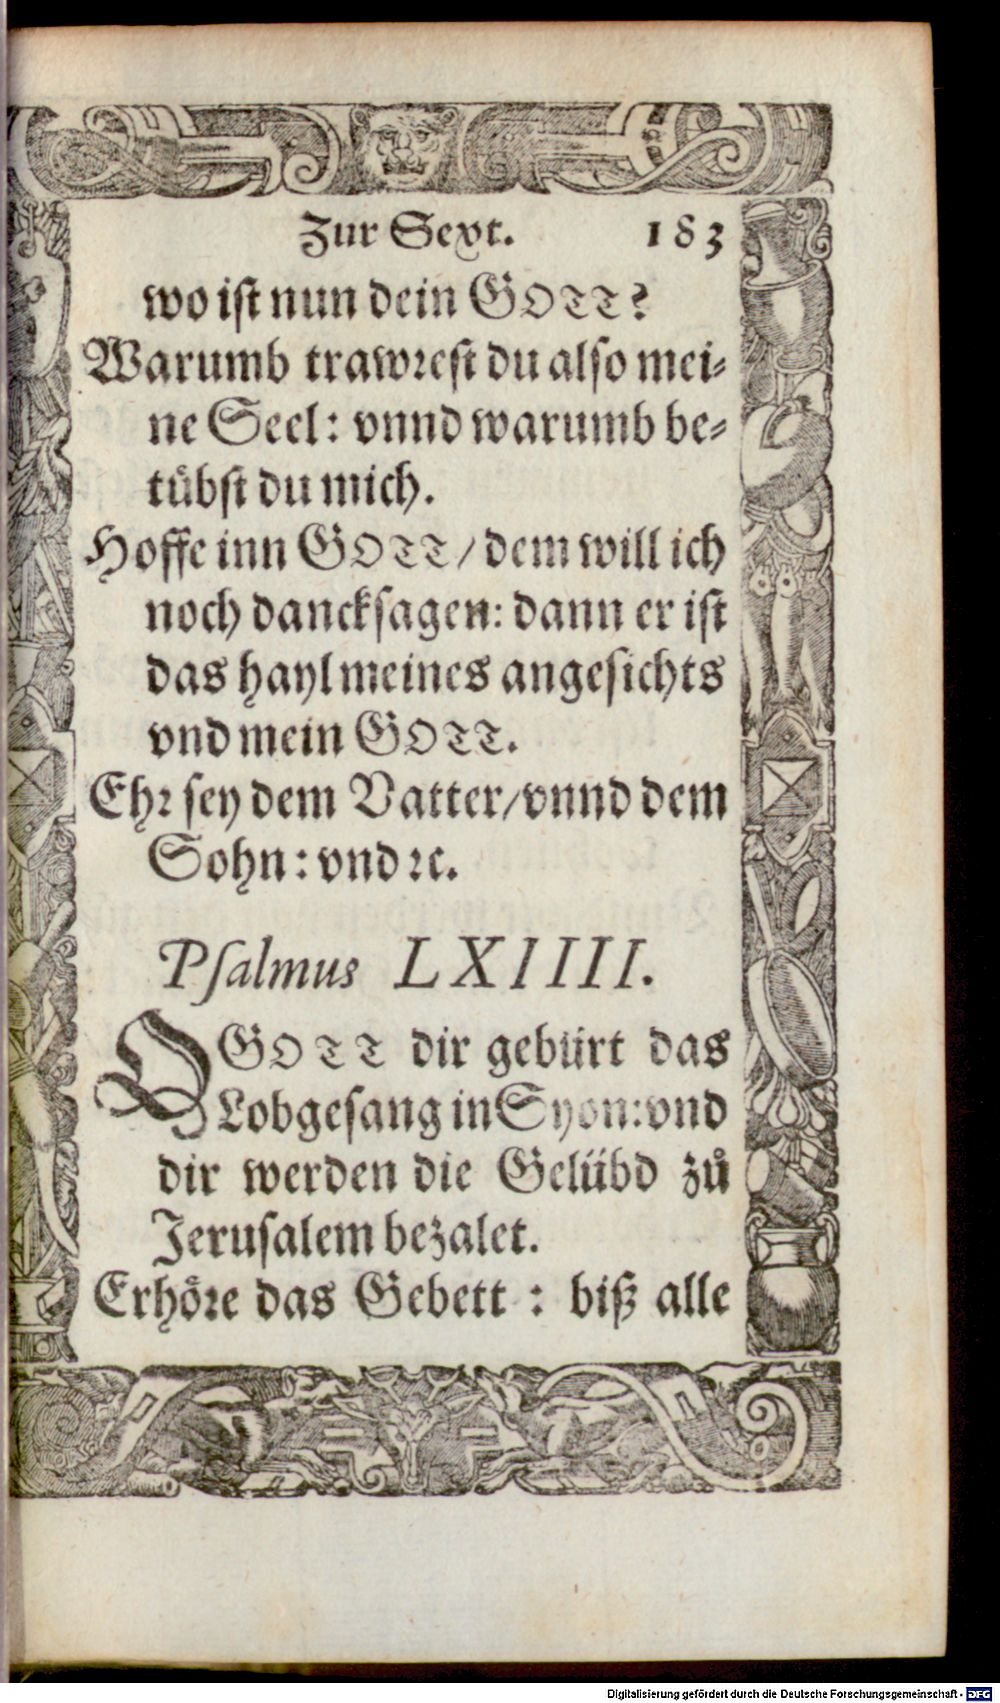 Zur Sext. 183
wo ist nun dein GOTT?
Warumb trawrest du also mei⸗
ne Seel: vnnd warumb be⸗
tuͤbst du mich.
Hoffe inn GOTT/ dem will ich
noch dancksagen: dann er ist
das hayl meines angesichts
vnd mein GOTT.
Ehr sey dem Vatter/ vnnd dem
Sohn: vnd ꝛc.
Psalmus LXIIII.
O GOTT dir gebürt das
Lobgesang in Syon: vnd
dir werden die Gelübd zů
Jerusalem bezalet.
Erhoͤre das Gebett : biß alle
Digitalisierung gefördert durch die Deutsche Forschungsgemeinschaft - DFG